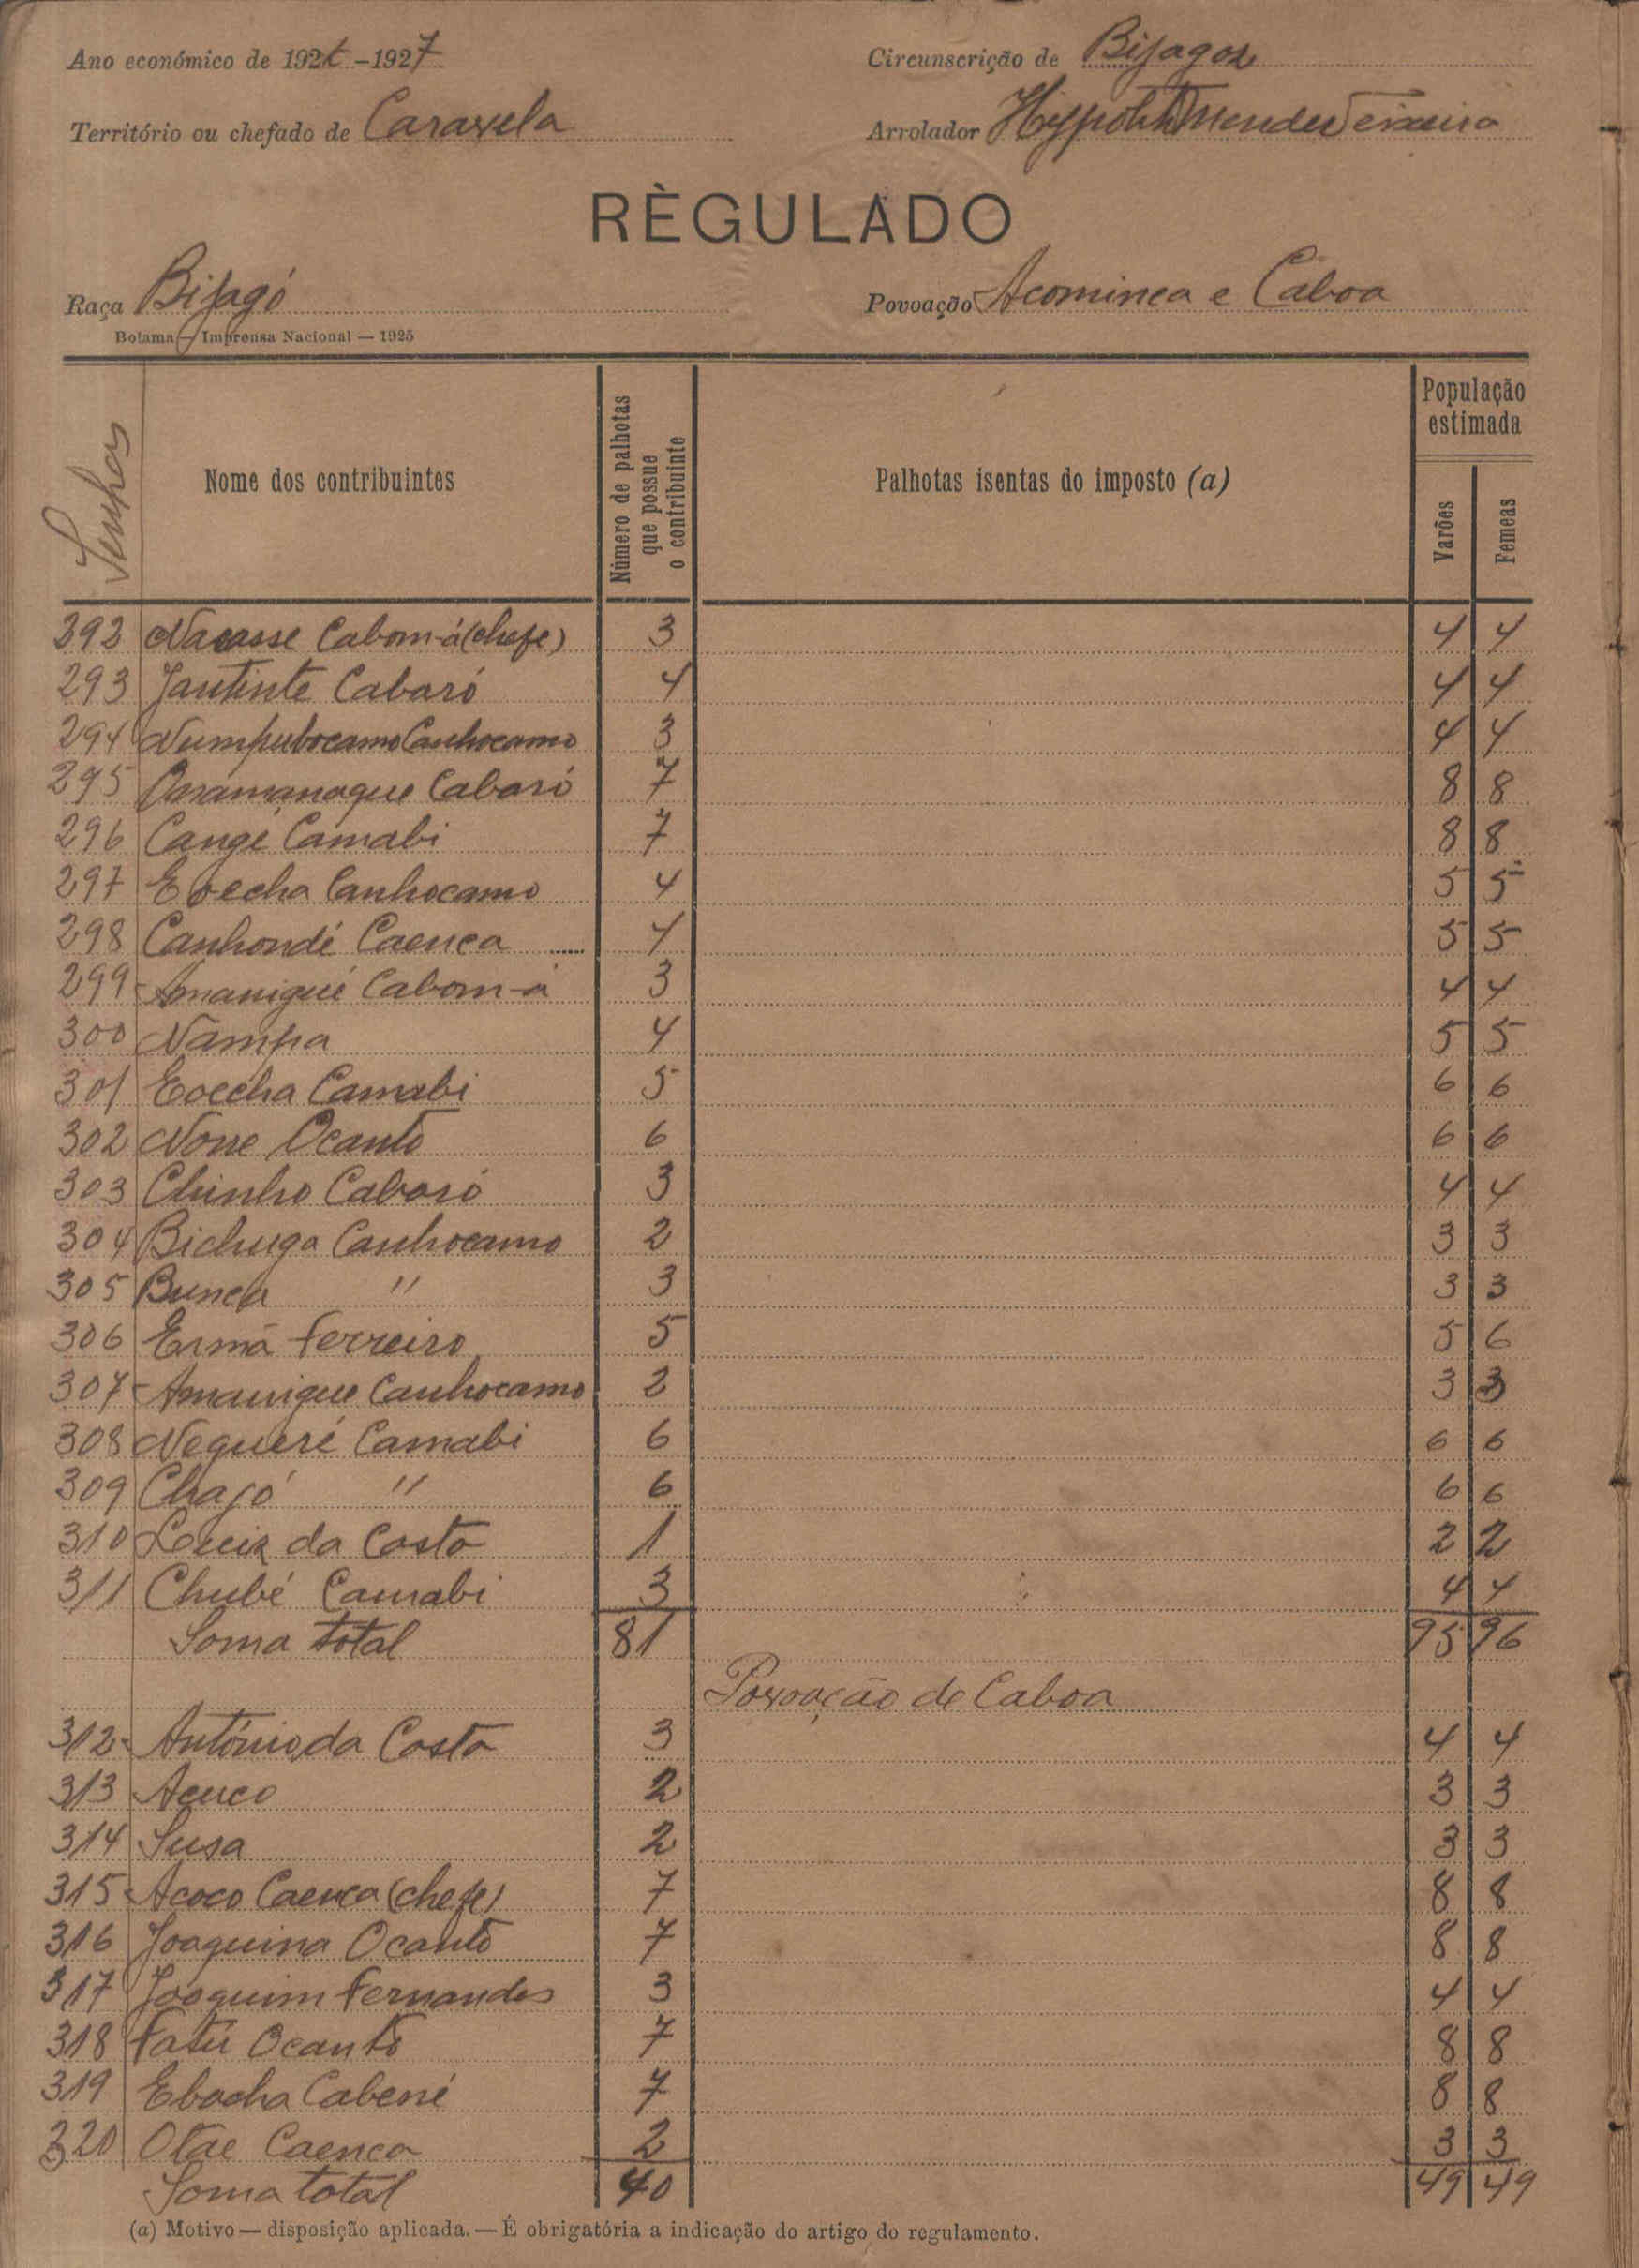 Ano económico de 192 -1927 Circunscrição de Bijagoz
Território ou chefado de Caravela Arrolador Hyppolito Mendes Teixeira
RÈGULADO
Raça Bijagó Povoação Acominca e Caboa
Bolama — Imprensa Nacional — 1925
Senhas Nome dos contribuintes Número de palhotas que possue o contribuinte Palhotas isentas do imposto (a) População estimada Varões Femeas
292 Nacasse Cabom-á (chefe) 3 4 4
293 Jautinte Cabaró 4 4 4
294 Numpubocamo Canhocamo 3 4 4
295 Oramanaque Cabaró 7 8 8
296 Cangé Camabi 7 8 8
297 Eoecha Canhocamo 4 5 5
298 Canhondé Caenca 4 5 5
299 Amanigué Cabom-á 3 4 4
300 Nampa 4 5 5
301 Eoecha Camabi 5 6 6
302 None Ocanto 6 6 6
303 Chinho Cabaró 3 4 4
304 Bichuga Canhocamo 2 3 3
305 Bunca " 3 3 3
306 Ermá Ferreiro 5 5 6
307 Amanigue Canhocamo 2 3 3
308 Negueré Camabi 6 6 6
309 Chajó " 6 6 6
310 Luiz da Costa 1 2 2
311 Chubé Camabi 3 4 4
Soma total 81 95 96
Povoação de Caboa
312 António da Costa 3 4 4
313 Acuco 2 3 3
314 Susa 2 3 3
315 Acoco Caenca (chefe) 7 8 8
316 Joaquina Ocanto 7 8 8
317 Joaquim Fernandes 3 4 4
318 Fatu Ocanto 7 8 8
319 Ebacha Cabené 7 8 8
320 Otae Caenca 2 3 3
Soma total 40 49 49
(a) Motivo — disposição aplicada. — É obrigatória a indicação do artigo do regulamento.